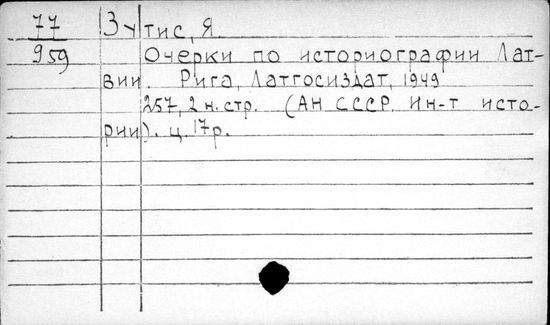 77 Зутис, Я.
959 Очерки по историографии Лат-
вии. Рига, Латгосиздат, 1949
257, 2 н. стр. (АН СССР. Ин-т исто-
рии). ц. 17 р.